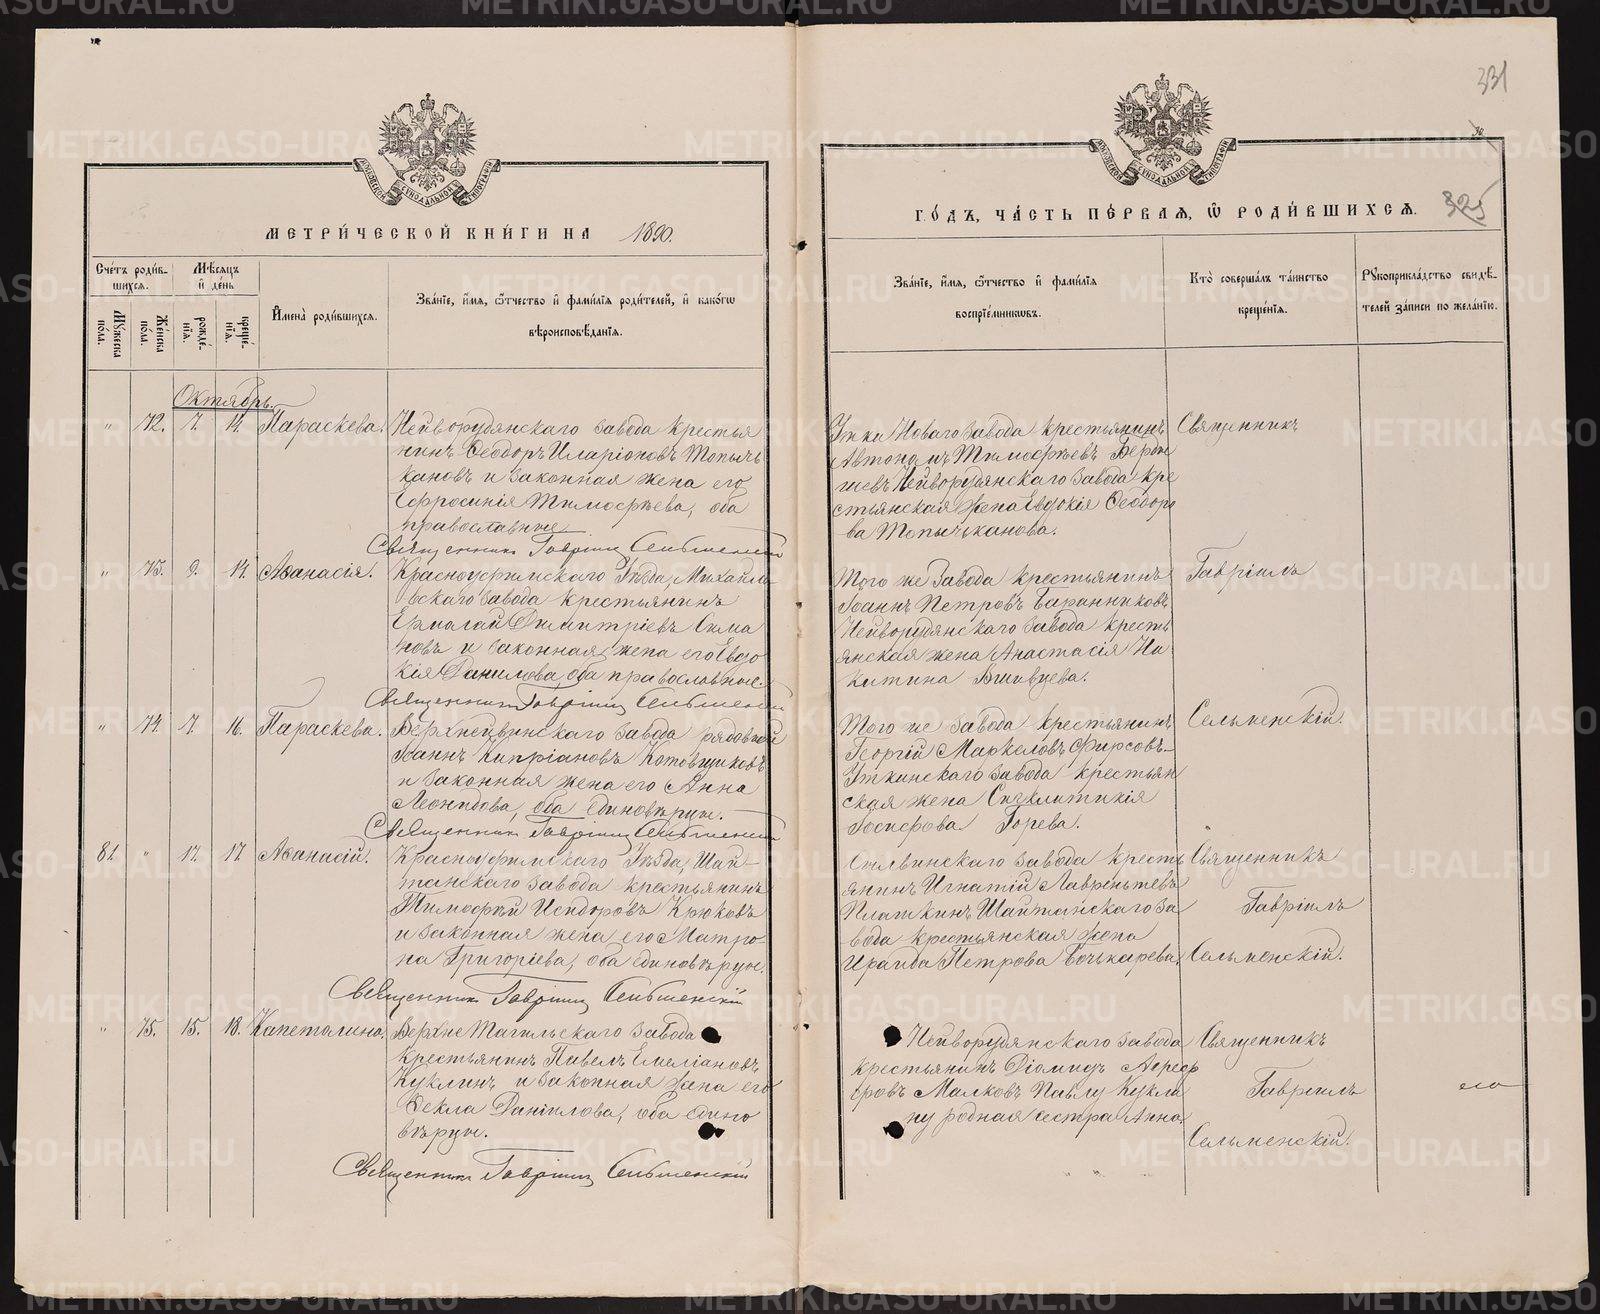 331
325
МЕТРИ́ЧЕСКОЙ КНИ́ГИ НА 1890.
ГО́ДЪ, ЧА́СТЬ ПЕ́РВАЯ, Ѿ РОДИ́ВШИХСЯ.
Сче́тъ роди́в-
шихся.
Мѣ́сяцъ
и де́нь
Мꙋжеска по́ла.
Же́нска по́ла.
рожде́-
нїя.
креще́-
нїя.
Имена̀ роди́вшихся.
Зва́нїе, и́мя, ѻ҆́тчество и фами́лїя роди́телей, и како́гѡ
вѣроисповѣ́данїя.
Зва́нїе, и́мя, ѻ҆́тчество и фами́лїя
воспрїе́мникѡвъ.
Кто̀ соверша́лъ та́инство
креще́нїя.
Рꙋкоприкла́дство свидѣ́-
телей за́писи по жела́нїю.
Октябрь.
" 72. 7. 14. Параскева.
Нейворудянскаго завода крестья
нинъ Ѳеодоръ Иларіоновъ Топычь
кановъ и законная жена его
Ефросинія Тимоѳѣева, оба
православные
Священникъ Гавріилъ Сельменскій
Утки Новаго завода крестьянинъ
Автономъ Тимоѳѣевъ
Нейворудянскаго завода кре
стьянская жена Евдокія Ѳеодоро
ва Топычканова.
Священникъ
" 73. 9. 14. Аѳанасія.
Красноуфимскаго Уѣзда, Михайло
вскаго завода крестьянинъ
Ермолай Димитріевъ Сима
новъ и законная жена его Евдо
кія Данилова, оба православные.
Священникъ Гавріилъ Сельменскій
Того же завода крестьянинъ
Іоаннъ Петровъ Баранниковъ
Нейворудянскаго завода кресть
янская жена Анастасія Ни
китина Вшивцева.
Гавріилъ
" 74. 7. 16. Параскева.
Верхнейвинскаго завода рядовой
Іоаннъ Кипріановъ Котовщиковъ
и законная жена его Анна
Леонидова, оба единовѣрцы.
Священникъ Гавріилъ Сельменскій
Того же завода крестьянинъ
Георгій Маркеловъ Фирсовъ
Уткинскаго завода крестьян
ская жена Сигклитикія
Іосифова Горева.
Сельменскій.
81. " 17. 17. Аѳанасій.
Красноуфимскаго Уѣзда, Шай-
танскаго завода крестьянинъ
Тимоѳей Исидоровъ Крюковъ
и законная жена его Матро-
на Григоріева, оба единовѣрцы.
Священникъ Гавріилъ Сельменскій
Сылвинскаго завода кресть
янинъ Игнатій Лаврентьевъ
Платкинъ Шайтанскаго за
вода крестьянская жена
Ираида Петрова Бочькарева.
Священникъ
Гавріилъ
Сельменскій.
" 75. 15. 18. Капеталина.
Верхне Тагильскаго завода
крестьянинъ Павелъ Емеліановъ
Куклинъ и законная жена его
Ѳекла Даніилова, оба едино
вѣрцы.
Священникъ Гавріилъ Сельменскій
Нейворудянскаго завода
крестьянинъ Діомидъ
Малковъ Павлу Кукли
ну родная сестра Анна.
Священникъ
Гавріилъ
Сельменскій.